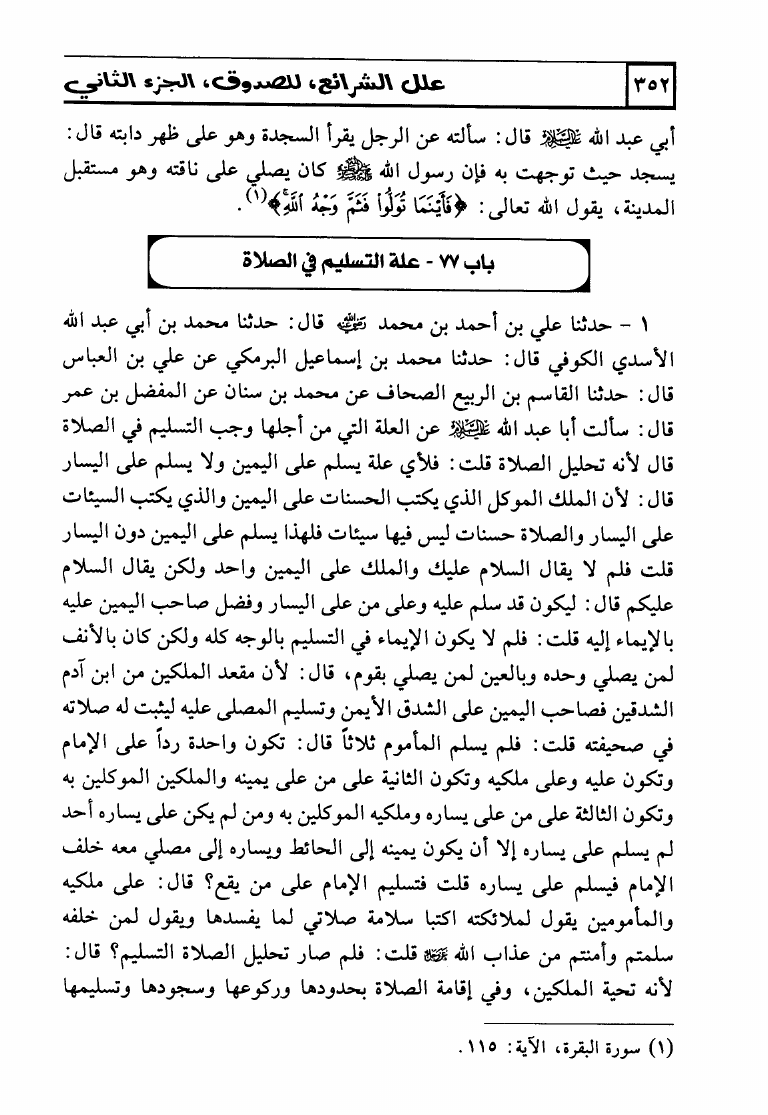 ٣٥٢
علل الشرائع، للصدوق، الجزء الثاني
أبي عبد الله عليه السلام قال: سألته عن الرجل يقرأ السجدة وهو على ظهر دابته قال:
يسجد حيث توجهت به فإن رسول الله ﷺ كان يصلي على ناقته وهو مستقبل
المدينة، يقول الله تعالى: ﴿فَأَيْنَمَا تُوَلُّوا فَثَمَّ وَجْهُ ٱللَّهِ﴾(١).
باب ٧٧ - علة التسليم في الصلاة
١ - حدثنا علي بن أحمد بن محمد رضي الله عنه قال: حدثنا محمد بن أبي عبد الله
الأسدي الكوفي قال: حدثنا محمد بن إسماعيل البرمكي عن علي بن العباس
قال: حدثنا القاسم بن الربيع الصحاف عن محمد بن سنان عن المفضل بن عمر
قال: سألت أبا عبد الله عليه السلام عن العلة التي من أجلها وجب التسليم في الصلاة
قال لأنه تحليل الصلاة قلت: فلأي علة يسلم على اليمين ولا يسلم على اليسار
قال: لأن الملك الموكل الذي يكتب الحسنات على اليمين والذي يكتب السيئات
على اليسار والصلاة حسنات ليس فيها سيئات فلهذا يسلم على اليمين دون اليسار
قلت فلم لا يقال السلام عليك والملك على اليمين واحد ولكن يقال السلام
عليكم قال: ليكون قد سلم عليه وعلى من على اليسار وفضل صاحب اليمين عليه
بالإيماء إليه قلت: فلم لا يكون الإيماء في التسليم بالوجه كله ولكن كان بالأنف
لمن يصلي وحده وبالعين لمن يصلي بقوم، قال: لأن مقعد الملكين من ابن آدم
الشدقين فصاحب اليمين على الشدق الأيمن وتسليم المصلى عليه ليثبت له صلاته
في صحيفته قلت: فلم يسلم المأموم ثلاثاً قال: تكون واحدة رداً على الإمام
وتكون عليه وعلى ملكيه وتكون الثانية على من على يمينه والملكين الموكلين به
وتكون الثالثة على من على يساره وملكيه الموكلين به ومن لم يكن على يساره أحد
لم يسلم على يساره إلا أن يكون يمينه إلى الحائط ويساره إلى مصلي معه خلف
الإمام فيسلم على يساره قلت فتسليم الإمام على من يقع؟ قال: على ملكيه
والمأمومين يقول لملائكته اكتبا سلامة صلاتي لما يفسدها ويقول لمن خلفه
سلمتم وأمنتم من عذاب الله عز وجل قلت: فلم صار تحليل الصلاة التسليم؟ قال:
لأنه تحية الملكين، وفي إقامة الصلاة بحدودها وركوعها وسجودها وتسليمها
(١) سورة البقرة، الآية: ١١٥.